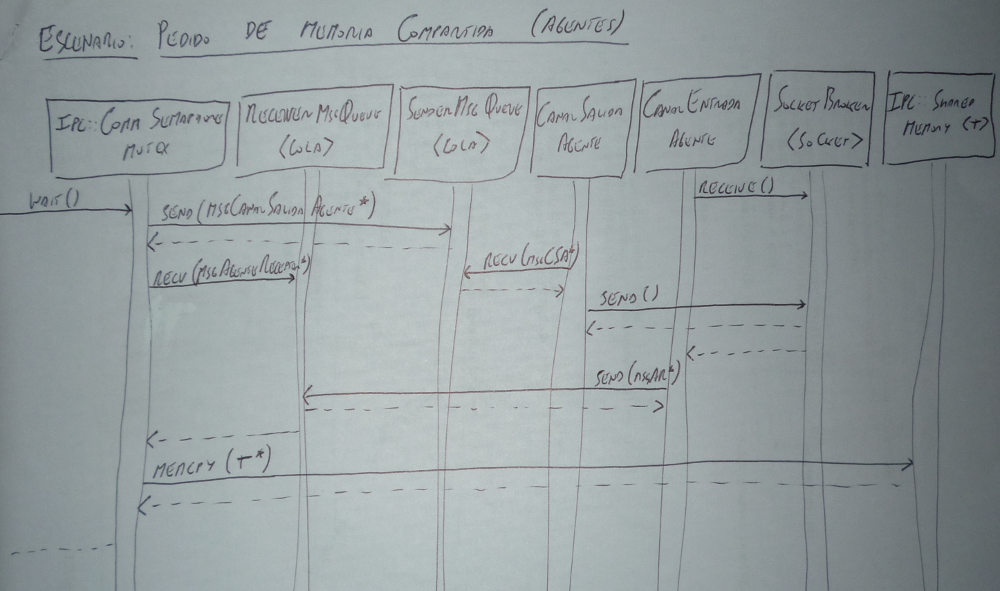 ESCENARIO: PEDIDO DE MEMORIA COMPARTIDA (AGENTES)
IPC::COMM SEMAPHORE
MUTEX
RECEIVERMSGQUEUE
<COLA>
SENDERMSGQUEUE
<COLA>
CANALSALIDA
AGENTE
CANALENTRADA
AGENTE
SOCKETBROKER
<SOCKET>
IPC::SHARED
MEMORY <T>
WAIT()
RECEIVE()
SEND(MSGCANALSALIDAAGENTE*)
RECV(MSGCSA*)
RECV(MSGAGENTERECEPTOR*)
SEND()
SEND(MSGAR*)
MEMCPY (T*)